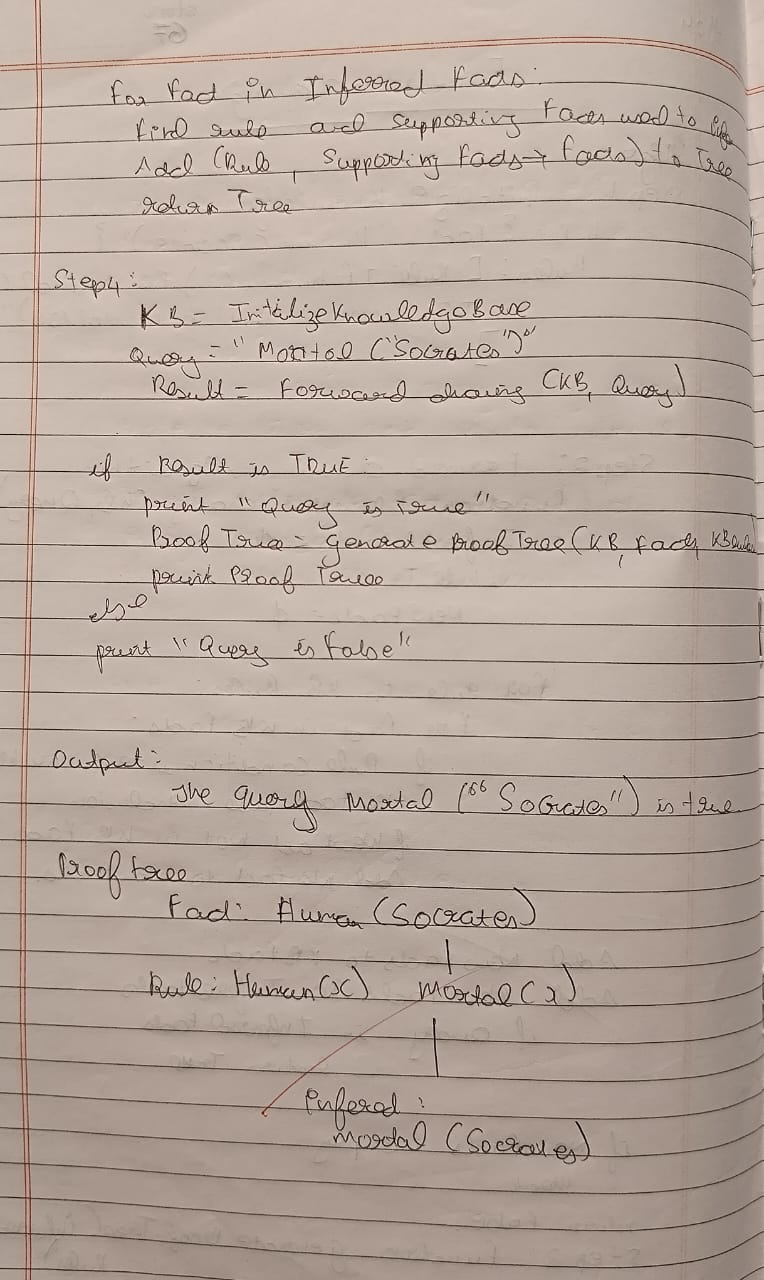 For Fact in Inferred Facts:
Find rule and supporting Facts used to
Add (Rule, Supporting Facts → facts) to Tree
return Tree
Step4:
KB = InitializeKnowledgeBase
Query = "Mortal ("Socrates")"
Result = Forward chaining (KB, Query)
if Result is TRUE:
print "Query is True"
Proof Tree = generate Proof Tree (KB, Facts, KB
print Proof Tree
else
print "Query is False"
Output:
The query Mortal ("Socrates") is true
Proof tree
Fact: Human (Socrates)
Rule: Human(x) Mortal(x)
Infered:
Mortal (Socrates)